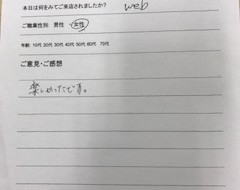 本日は何をみてご来店されましたか? web
ご職業性別 男性 女性
年齢 10代 20代 30代 40代 50代 60代 70代
ご意見・ご感想
楽しかったです。